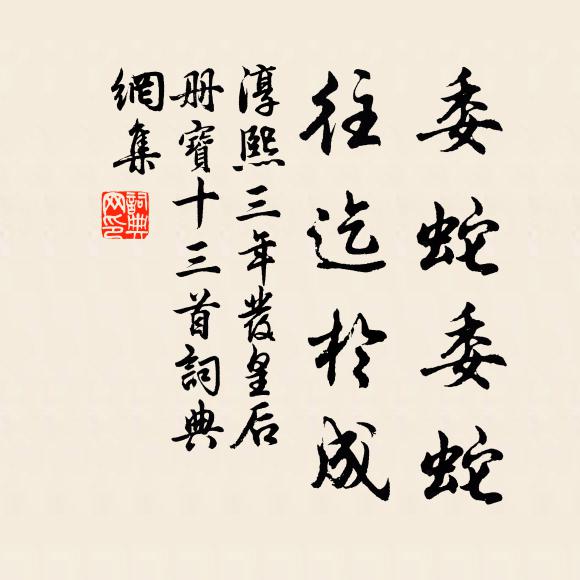 委蛇委蛇
往迄於成
淳熙三年發皇后
册寶十三首詞典
網集
詞典網印